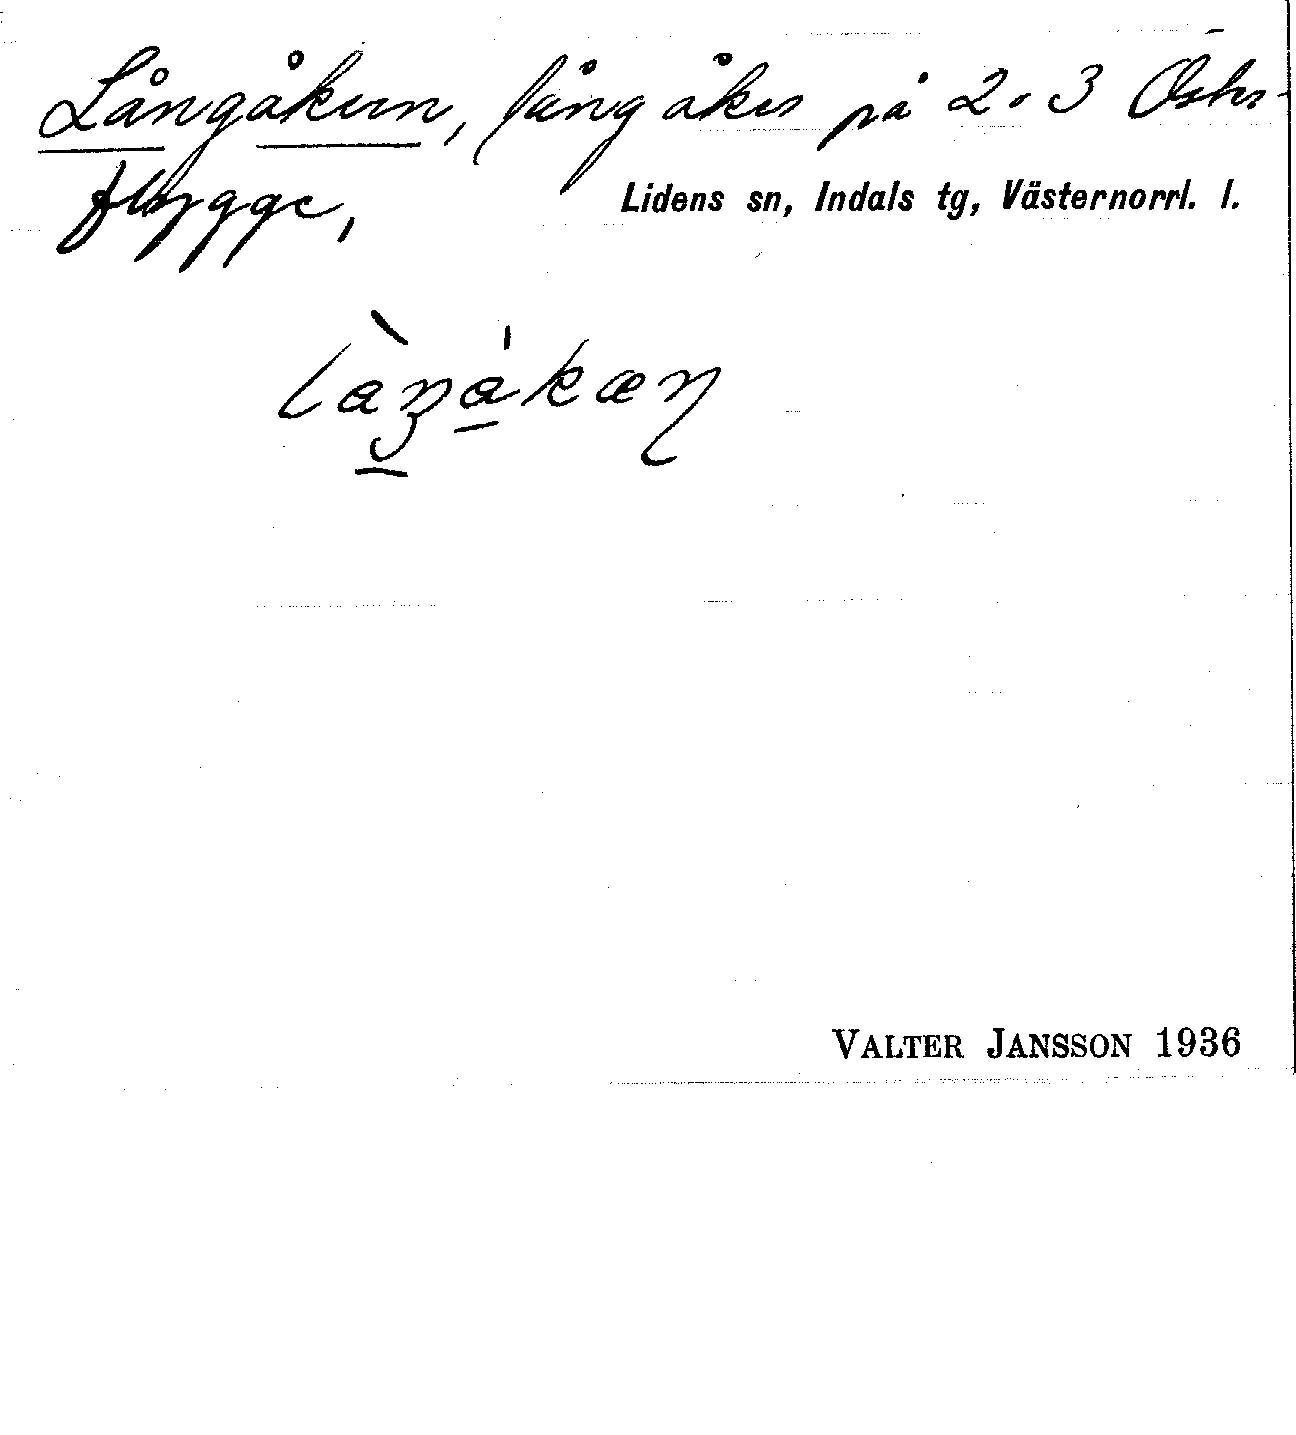 Långåkern, lång åker på 2 o 3 Öster-
flygge,
Lidens sn, Indals tg, Västernorrl. l.
VALTER JANSSON 1936